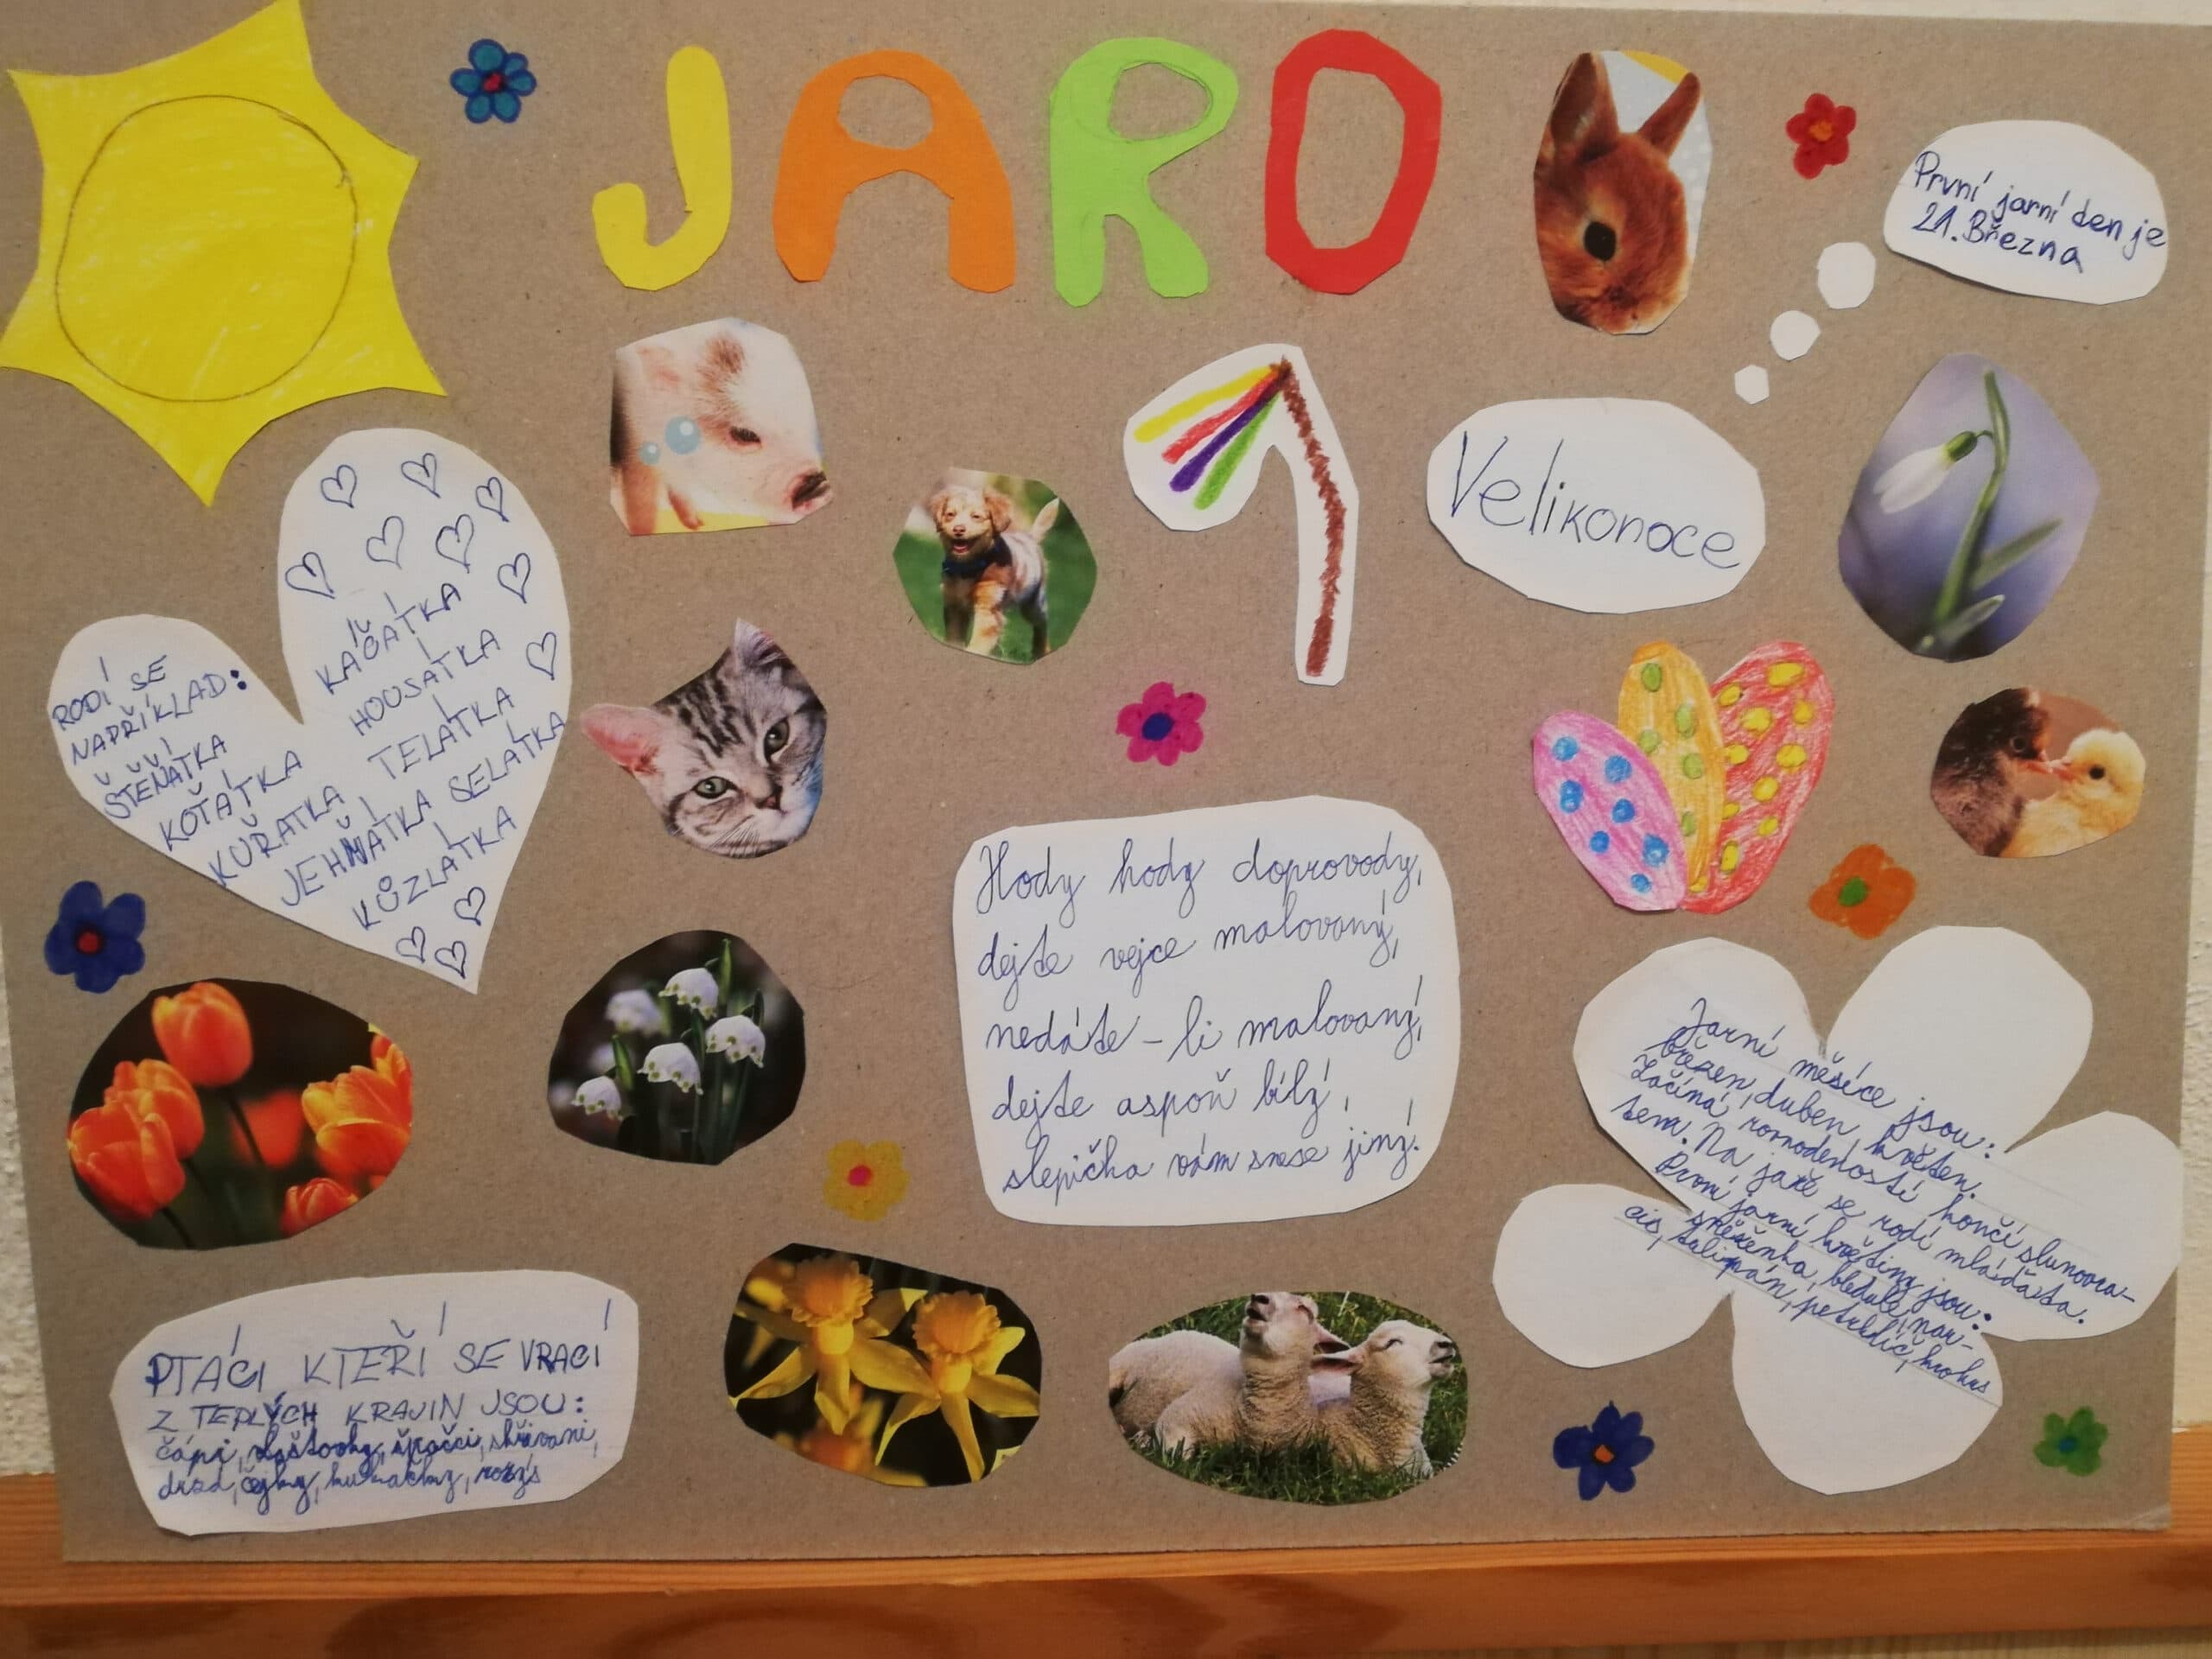 JARO
První jarní den je
21. Března
Velikonoce
RODÍ SE
NAPŘÍKLAD:
ŠTĚŇÁTKA
KOŤÁTKA
KUŘATKA
JEHŇÁTKA
KŮZLÁTKA
KAČÁTKA
HOUSÁTKA
TELÁTKA
SELÁTKA
Hody hody doprovody,
dejte vejce malovaný,
nedáte-li malovaný,
dejte aspoň bílý,
slepička vám snese jiný.
Jarní měsíce jsou:
březen, duben, květen.
Začíná rovnodeností končí slunovra-
tem. Na jaře se rodí mláďata.
První jarní květiny jsou:
sněženka, bledule, nar-
cis, tulipán, petrklíč, krokus
PTÁCI KTEŘÍ SE VRACÍ
Z TEPLÝCH KRAJIN JSOU:
čápi, vlaštovky, špačci, skřivani,
drozd, čejky, kukačky, rorýs